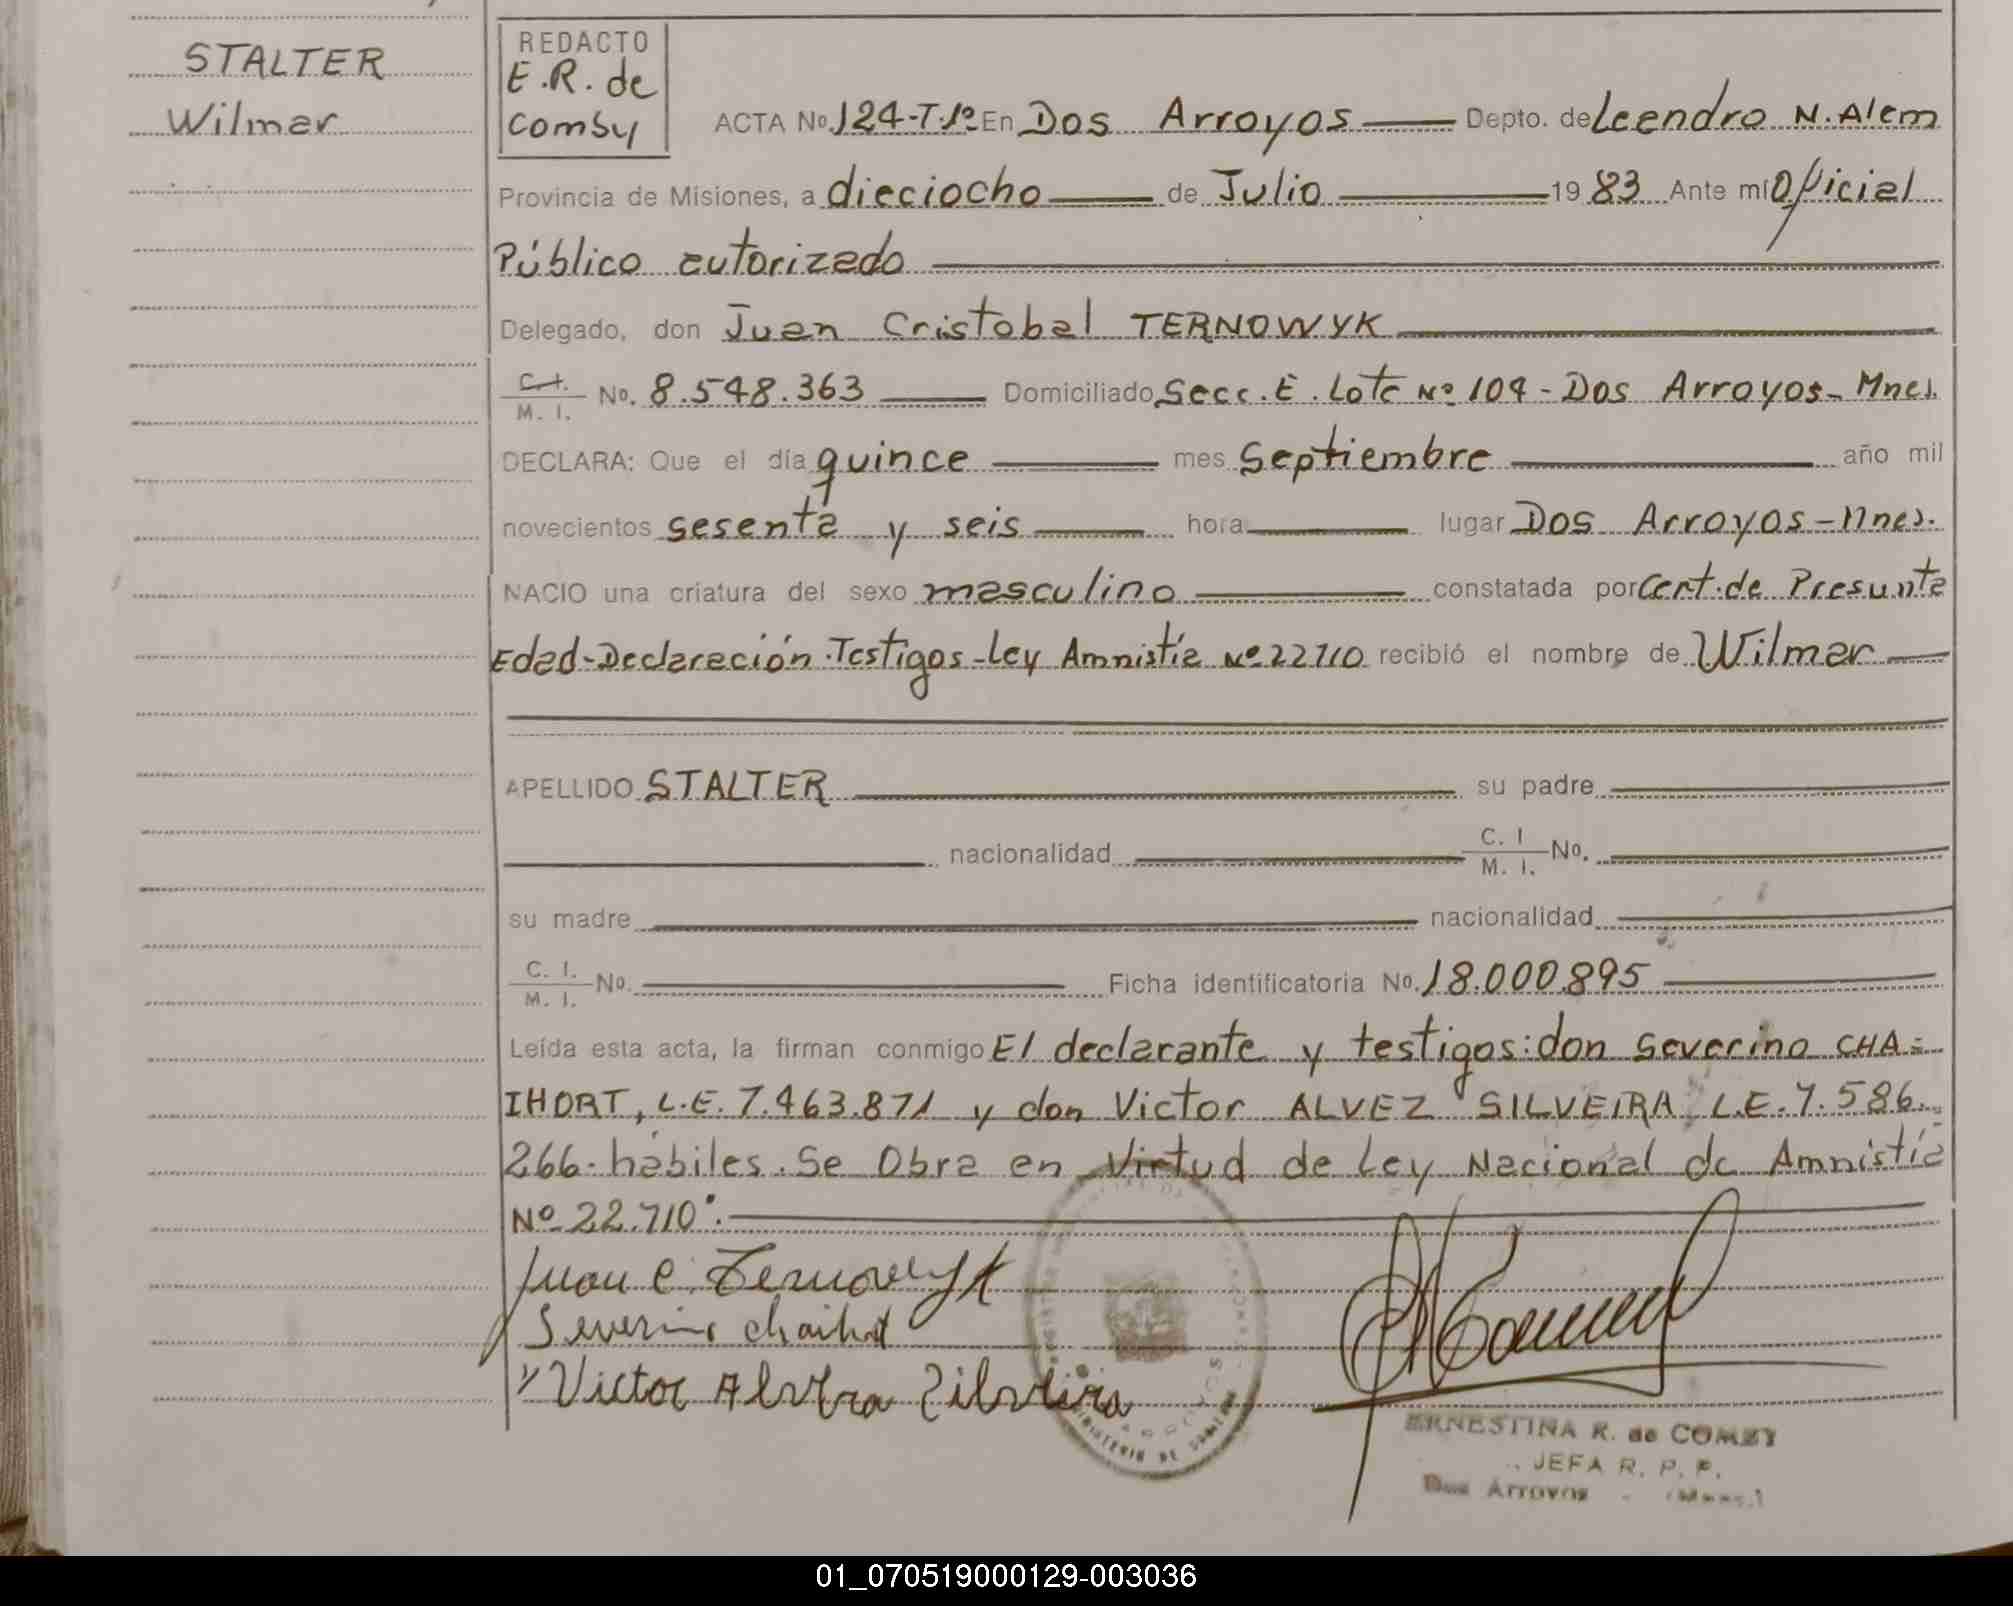 STALTER
Wilmar
REDACTO
E.R. de
Comby
ACTA No. 124-T.1º En Dos Arroyos Depto. de Leandro N. Alem
Provincia de Misiones, a dieciocho de Julio 19 83 Ante mí Oficial
Público autorizado
Delegado, don Juan Cristobal TERNOWYK
C.I. M. I. No. 8.548.363 Domiciliado Secc. E. Lote Nº 104 - Dos Arroyos - Mnes.
DECLARA: Que el día quince mes Septiembre año mil
novecientos sesenta y seis hora lugar Dos Arroyos - Mnes.
NACIO una criatura del sexo masculino constatada por Cert. de Presunta
Edad-Declaración Testigos-Ley Amnistía Nº 22710 recibió el nombre de Wilmar
APELLIDO STALTER su padre
nacionalidad C. I M. I. No.
su madre nacionalidad
C. I. M. I. No. Ficha identificatoria No. 18.000.895
Leída esta acta, la firman conmigo El declarante y testigos: don Severino CHA=
IHORT, L.E. 7.463.871 y don Victor ALVEZ SILVEIRA L.E. 7.586.
266-hábiles. Se Obra en Virtud de Ley Nacional de Amnistía
Nº 22.710.
Juan C. Ternowyk
Severino Chaihort
Victor Alvez Silveira
MINISTERIO DE GOBIERNO
ERNESTINA R. de COMBY
JEFA R. P. P.
Dos Arroyos - (Mnes.)
01_070519000129-003036